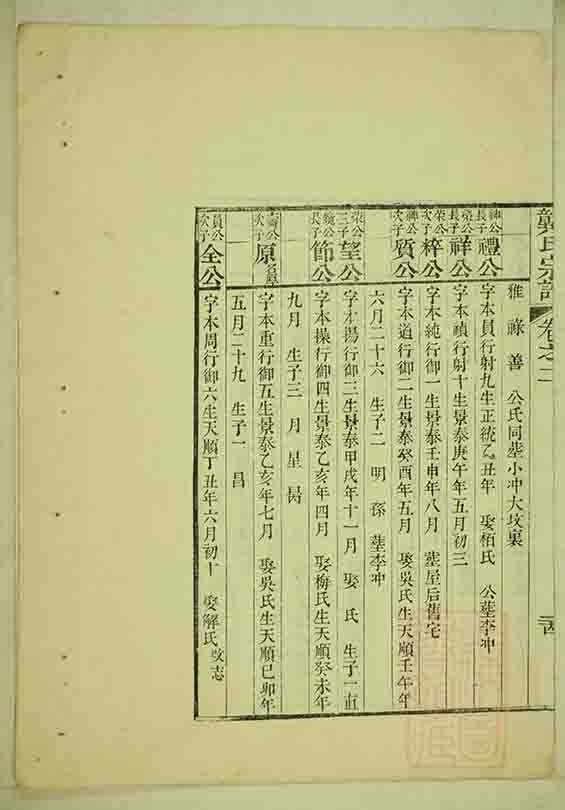 龔氏宗譜
卷之二
雅 祿 善 公氏同塟小冲大坟裏
神公長子 禮公 字本員行射九生正統乙丑年 娶栢氏 公塟李冲
榮公長子 祥公 字本禎行射十生景泰庚午年五月初三
榮公次子 粹公 字本純行御一生景泰壬申年八月 塟屋后舊宅
神公次子 質公 字本道行御二生景泰癸酉年五月 娶吳氏生天順壬午年
六月二十六 生子二 明 孫 塟李冲
榮公三子 望公 字本揚行御三生景泰甲戌年十一月 娶 氏 生子一
公長子 節公 字本操行御四生景泰乙亥年四月 娶梅氏生天順癸未年
九月 生子三 月 星
公次子 原 字本重行御五生景泰乙亥年七月 娶吳氏生天順己卯年
五月二十九 生子一 昌
員公次子 全公 字本周行御六生天順丁丑年六月初十 娶解氏 改志